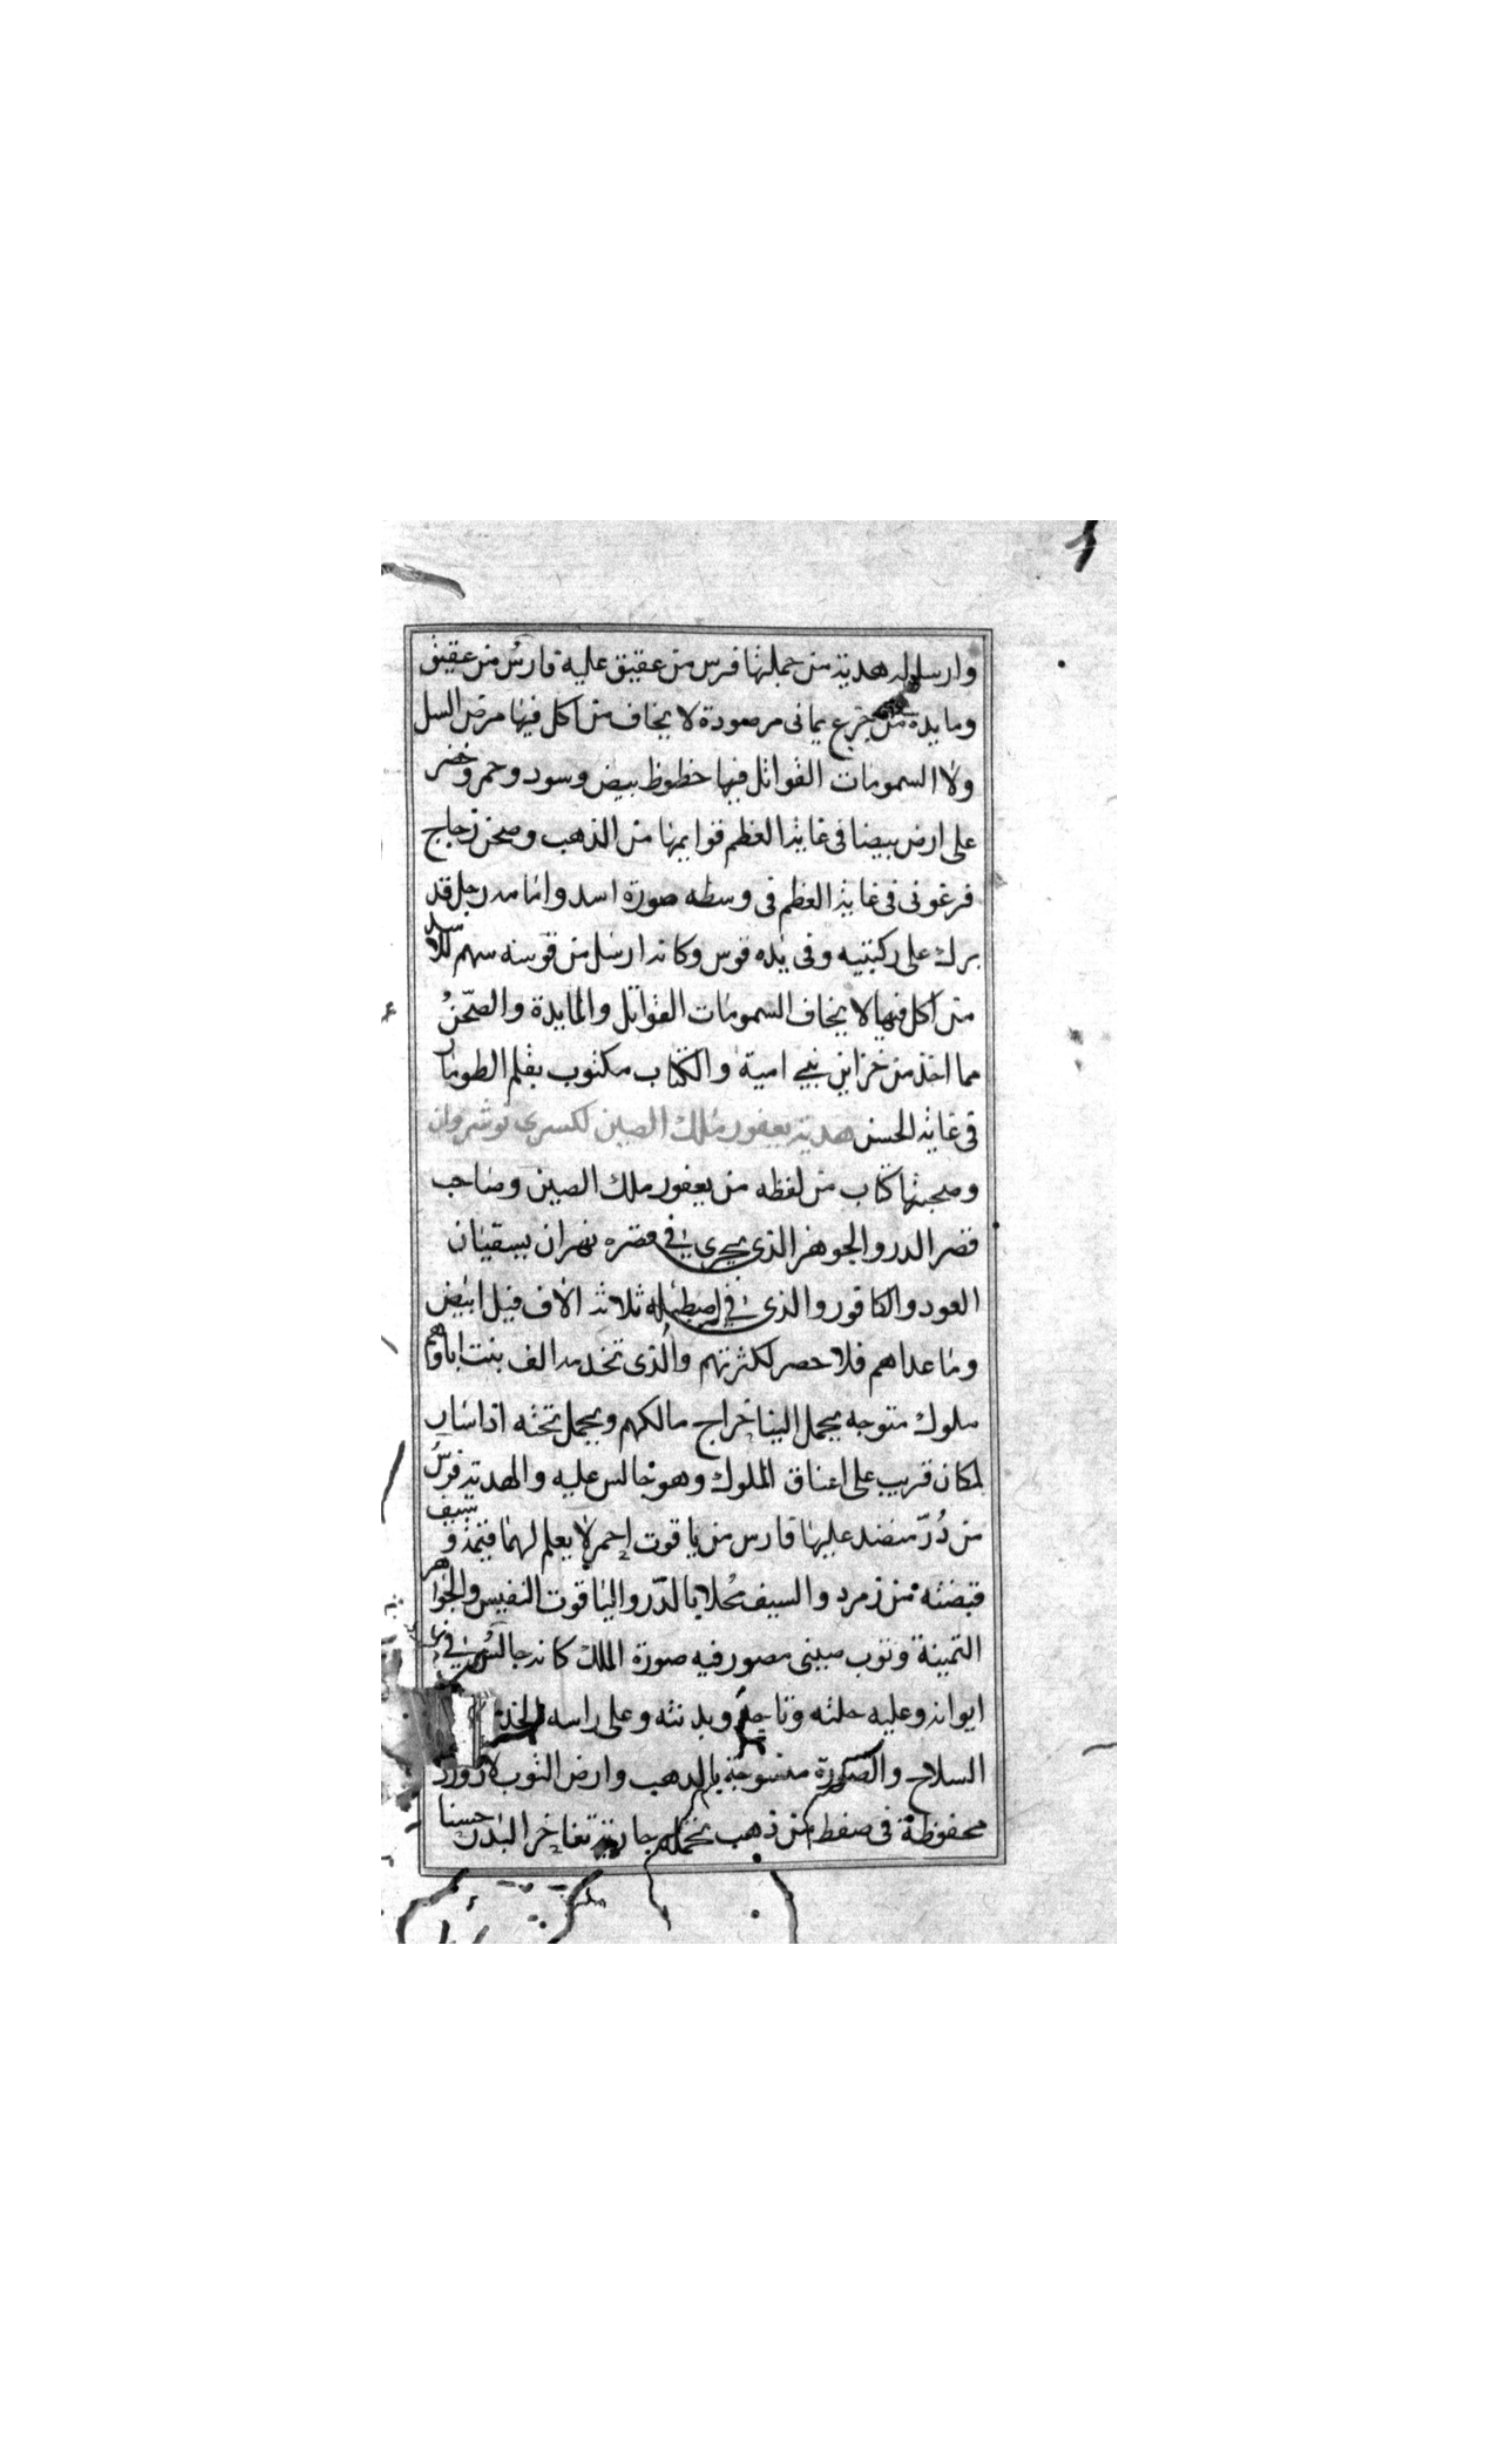 وارسلوله هدية من جملتها فرس من عقيق عليه فارس من عقيق
ومايدة من جزع يمانى مرصودة لا يخاف من اكل فيها مرض السل
ولا السمومات القواتل فيها خطوظ بيض وسود وحمر وخضر
على ارض بيضا فى غاية العظم قوايمها من الذهب وصحن زجاج
فرعونى فى غاية العظم فى وسطه صورة اسد وامامه رجل قد
برك على ركبتيه وفى يده قوس وكانه ارسل من قوسه سهم للاسد
من اكل فيها لا يخاف السمومات القواتل والمايدة والصّحنُ
مما اخذ من خزاين بني امية والكتاب مكتوب بقلم الطومار
فى غاية الحسن هدية يعفور ملك الصين لكسرى نوشروان
وصحبتها كتاب من لفظه من يعفور ملك الصين وصاحب
قصر الدر والجوهر الذى يجرى فى قصره نهران يسقيان
العود والكافور والذى فى اصطبله ثلاثة الاف فيل ابيض
وما عداهم فلا حصر لكثرتهم والذى تخدمه الف بنت اباوهم
ملوك متوجه يحمل الينا خراج مالكهم ويحمل تحته اذا سار
لمكان قريب على اعناق الملوك وهو جالس عليه والهدية فرسٌ
من دُرّ منضد عليها فارس من ياقوت احمر لا يعلم لهما قيمة وسيف
قبضته من زمرد والسيف مُحلا بالدّر والياقوت النفيس والجواهر
الثمينة وثوب صينى مصور فيه صورة الملك كانه جالسٌ فى
ايوانه وعليه حلته وتاجه وبدنته وعلى راسه الخدم
السلاح والصورة منسوجة بالدهب وارض الثوب لازورد
محفوظة فى صفط من ذهب تحمله جارية تفاخر البدر حسنا